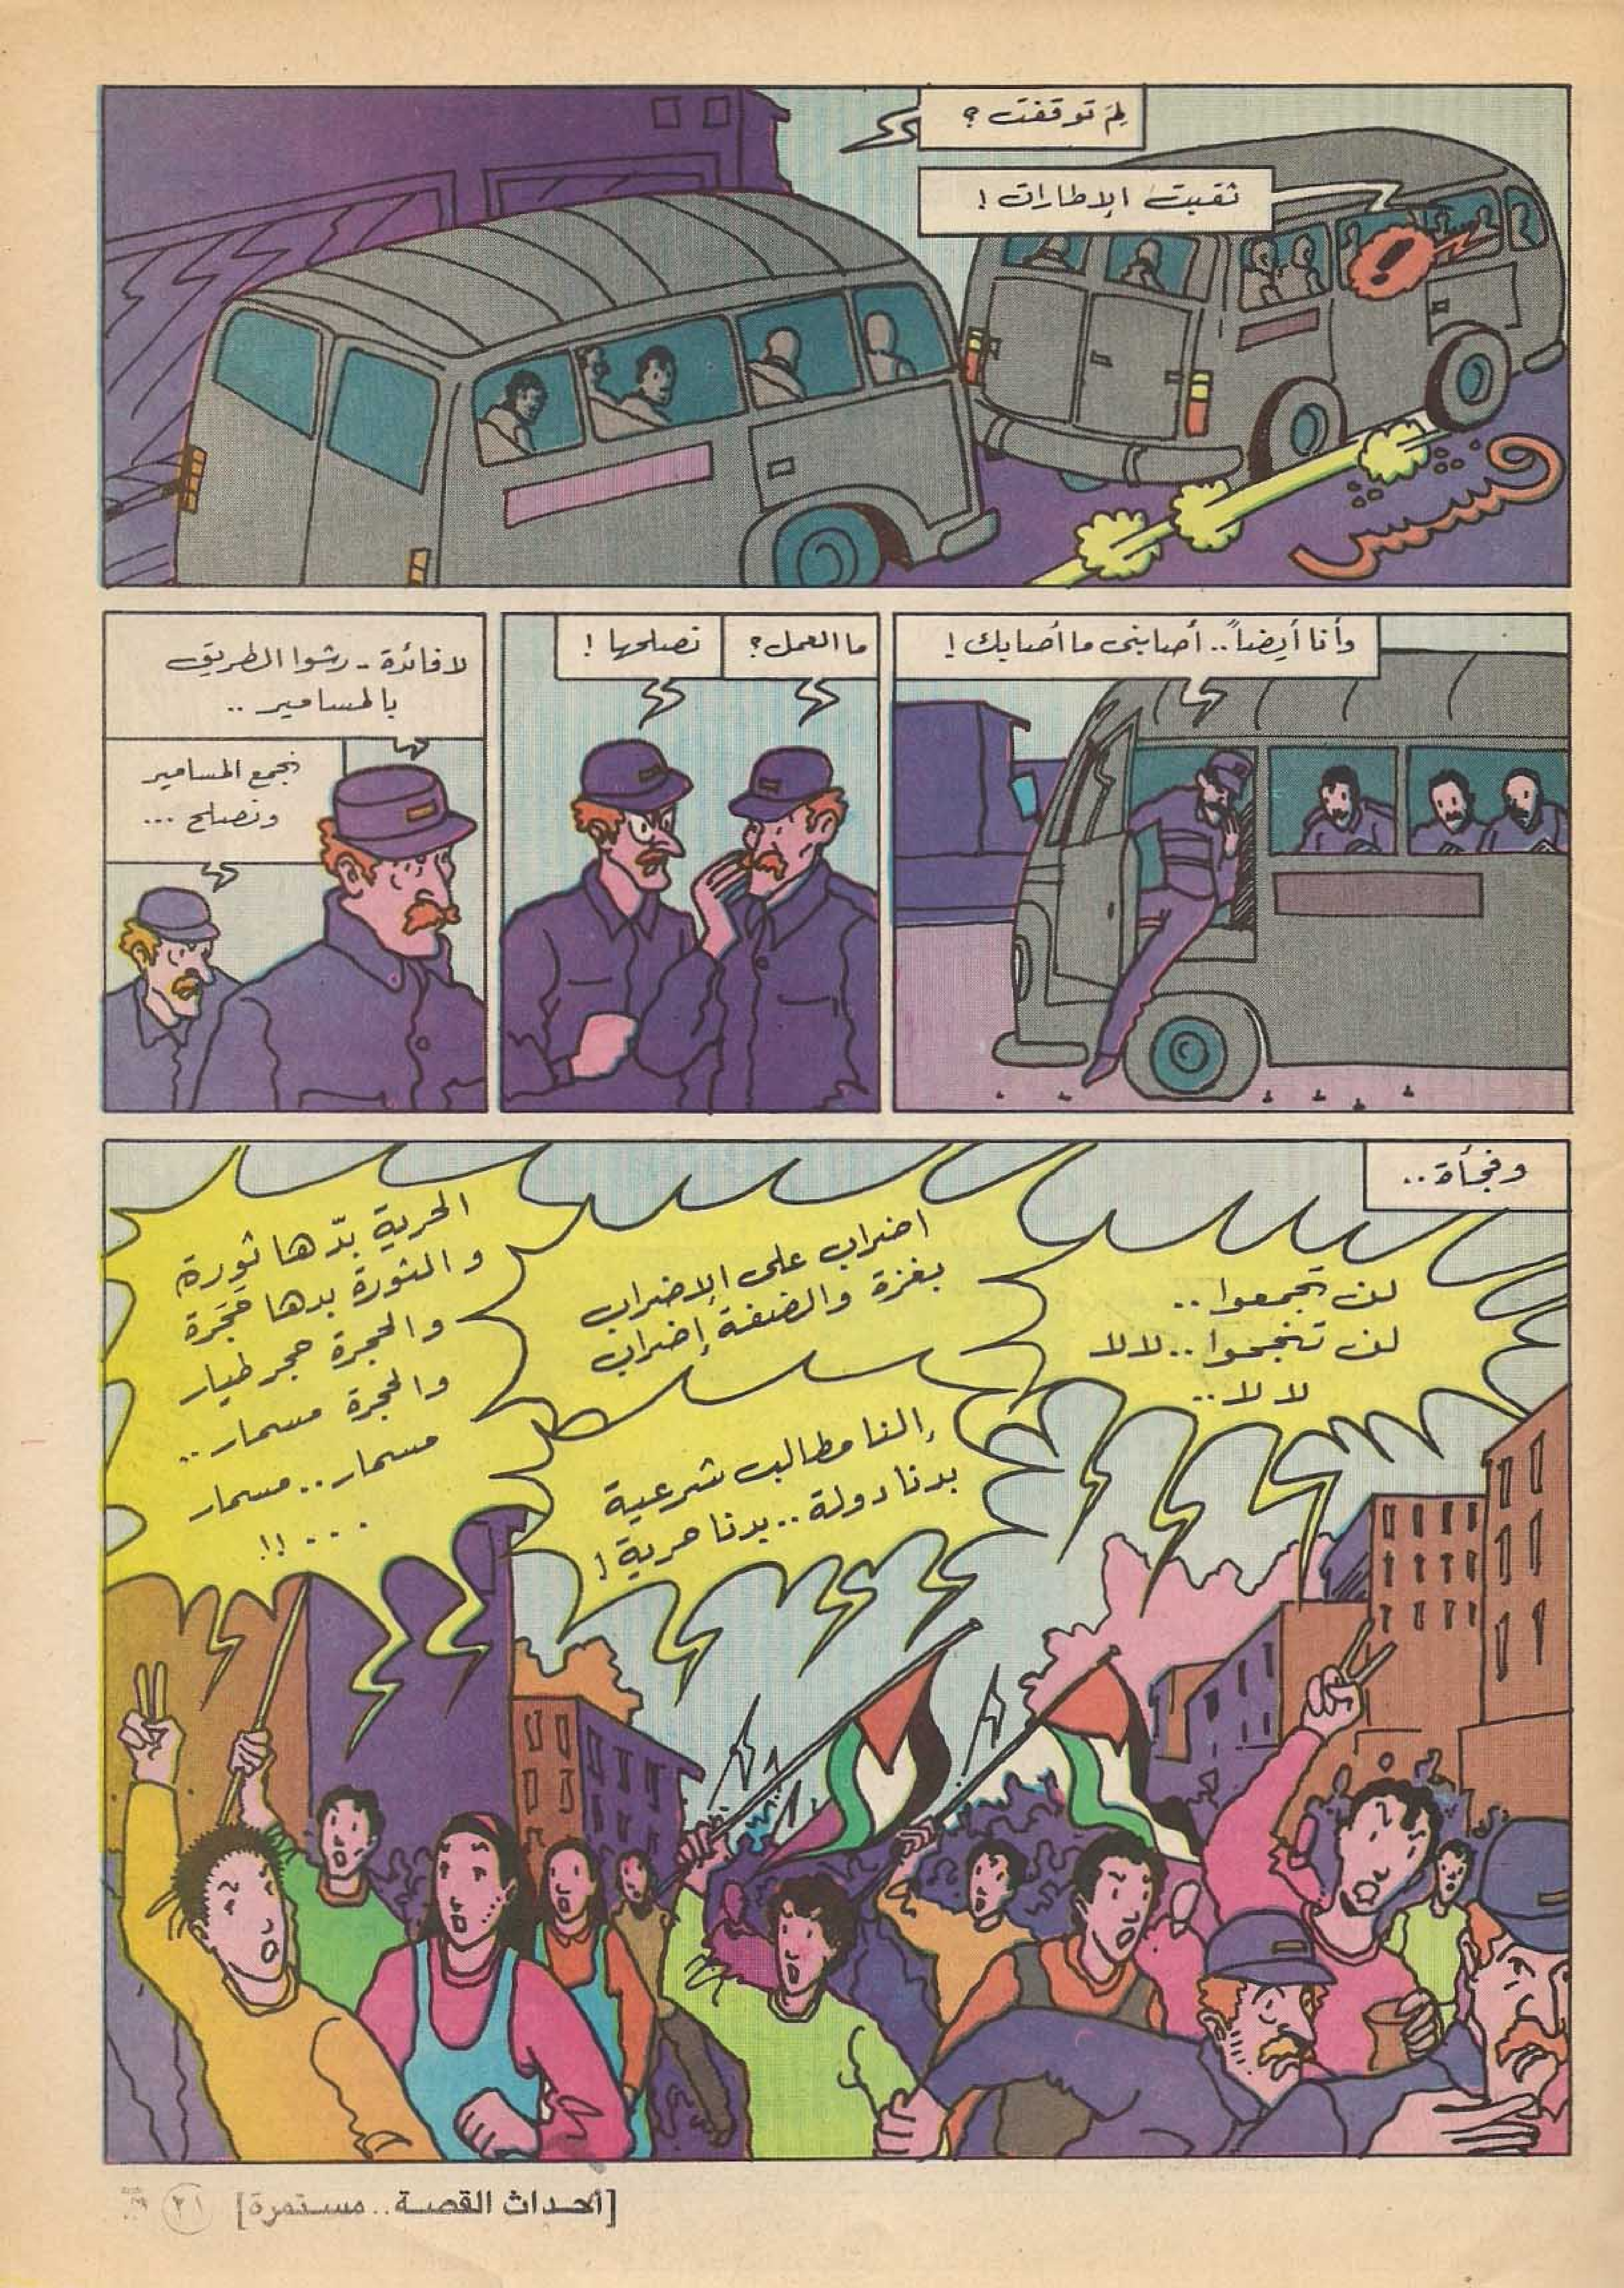 لِمَ توقفت؟
ثقبت الإطارات!
فسسس
وأنا أيضاً.. أصابني ما أصابك!
ما العمل؟
نصلحها!
لا فائدة - رشوا الطريق
بالمسامير ..
نجمع المسامير
ونصلح ...
وفجأة..
لن تجمعوا ..
لن تنجحوا .. لا لا
لا لا ..
اضراب على الإضراب
بغزة والضفة إضراب
إلنا مطالب شرعية
بدنا دولة .. بدنا حرية!
الحرية بدّها ثورة
والثورة بدها حَجَرة
والحجرة حجر طيار
والحجرة مسمار ..
مسمار .. مسمار
... !!
[أحداث القصة.. مستمرة]
٢١